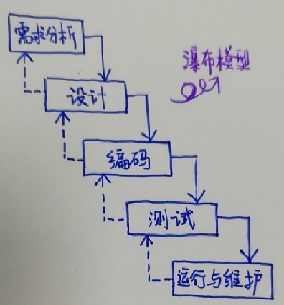 需求分析
瀑布模型
设计
编码
测试
运行与维护